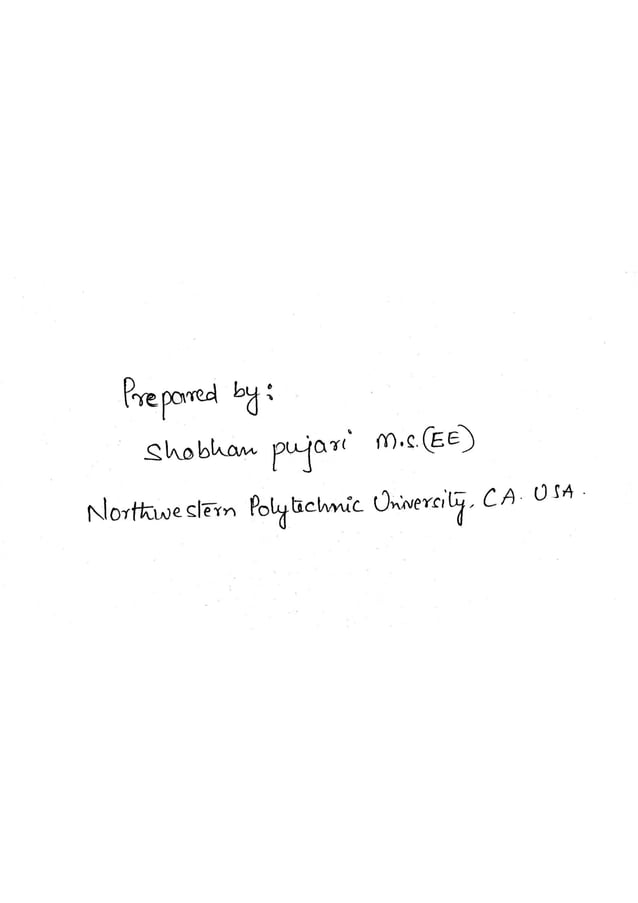 Prepared by:
Shobhan pujari M.S.(EE)
Northwestern Polytechnic University, CA. USA.